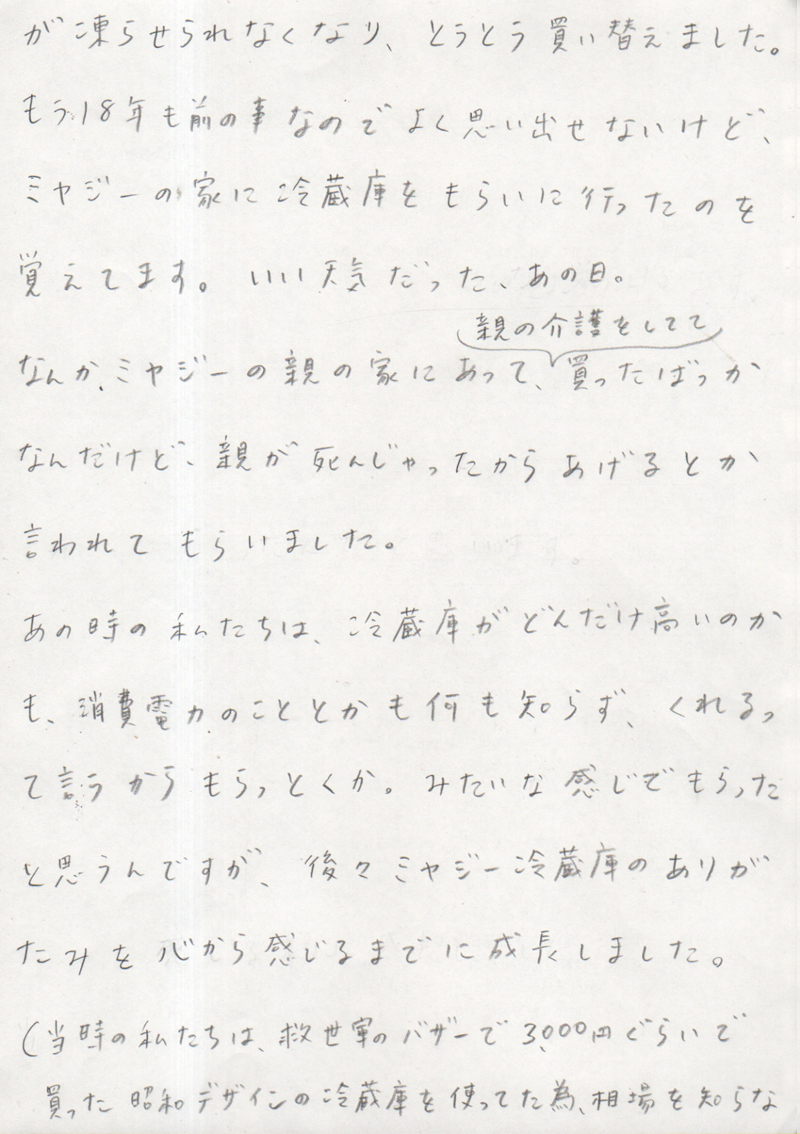 が凍らせられなくなり、とうとう買い替えました。
もう18年も前の事なのでよく思い出せないけど、
ミヤジーの家に冷蔵庫をもらいに行ったのを
覚えてます。いい天気だった、あの日。
親の介護をしてて
なんか、ミヤジーの親の家にあって、買ったばっか
なんだけど、親が死んじゃったからあげるとか
言われてもらいました。
あの時の私たちは、冷蔵庫がどんだけ高いのか
も、消費電力のこととかも何も知らず、くれるっ
て言うからもらっとくか。みたいな感じでもらった
と思うんですが、後々ミヤジー冷蔵庫のありが
たみを心から感じるまでに成長しました。
(当時の私たちは、救世軍のバザーで3,000円ぐらいで
買った昭和デザインの冷蔵庫を使ってた為、相場を知らな